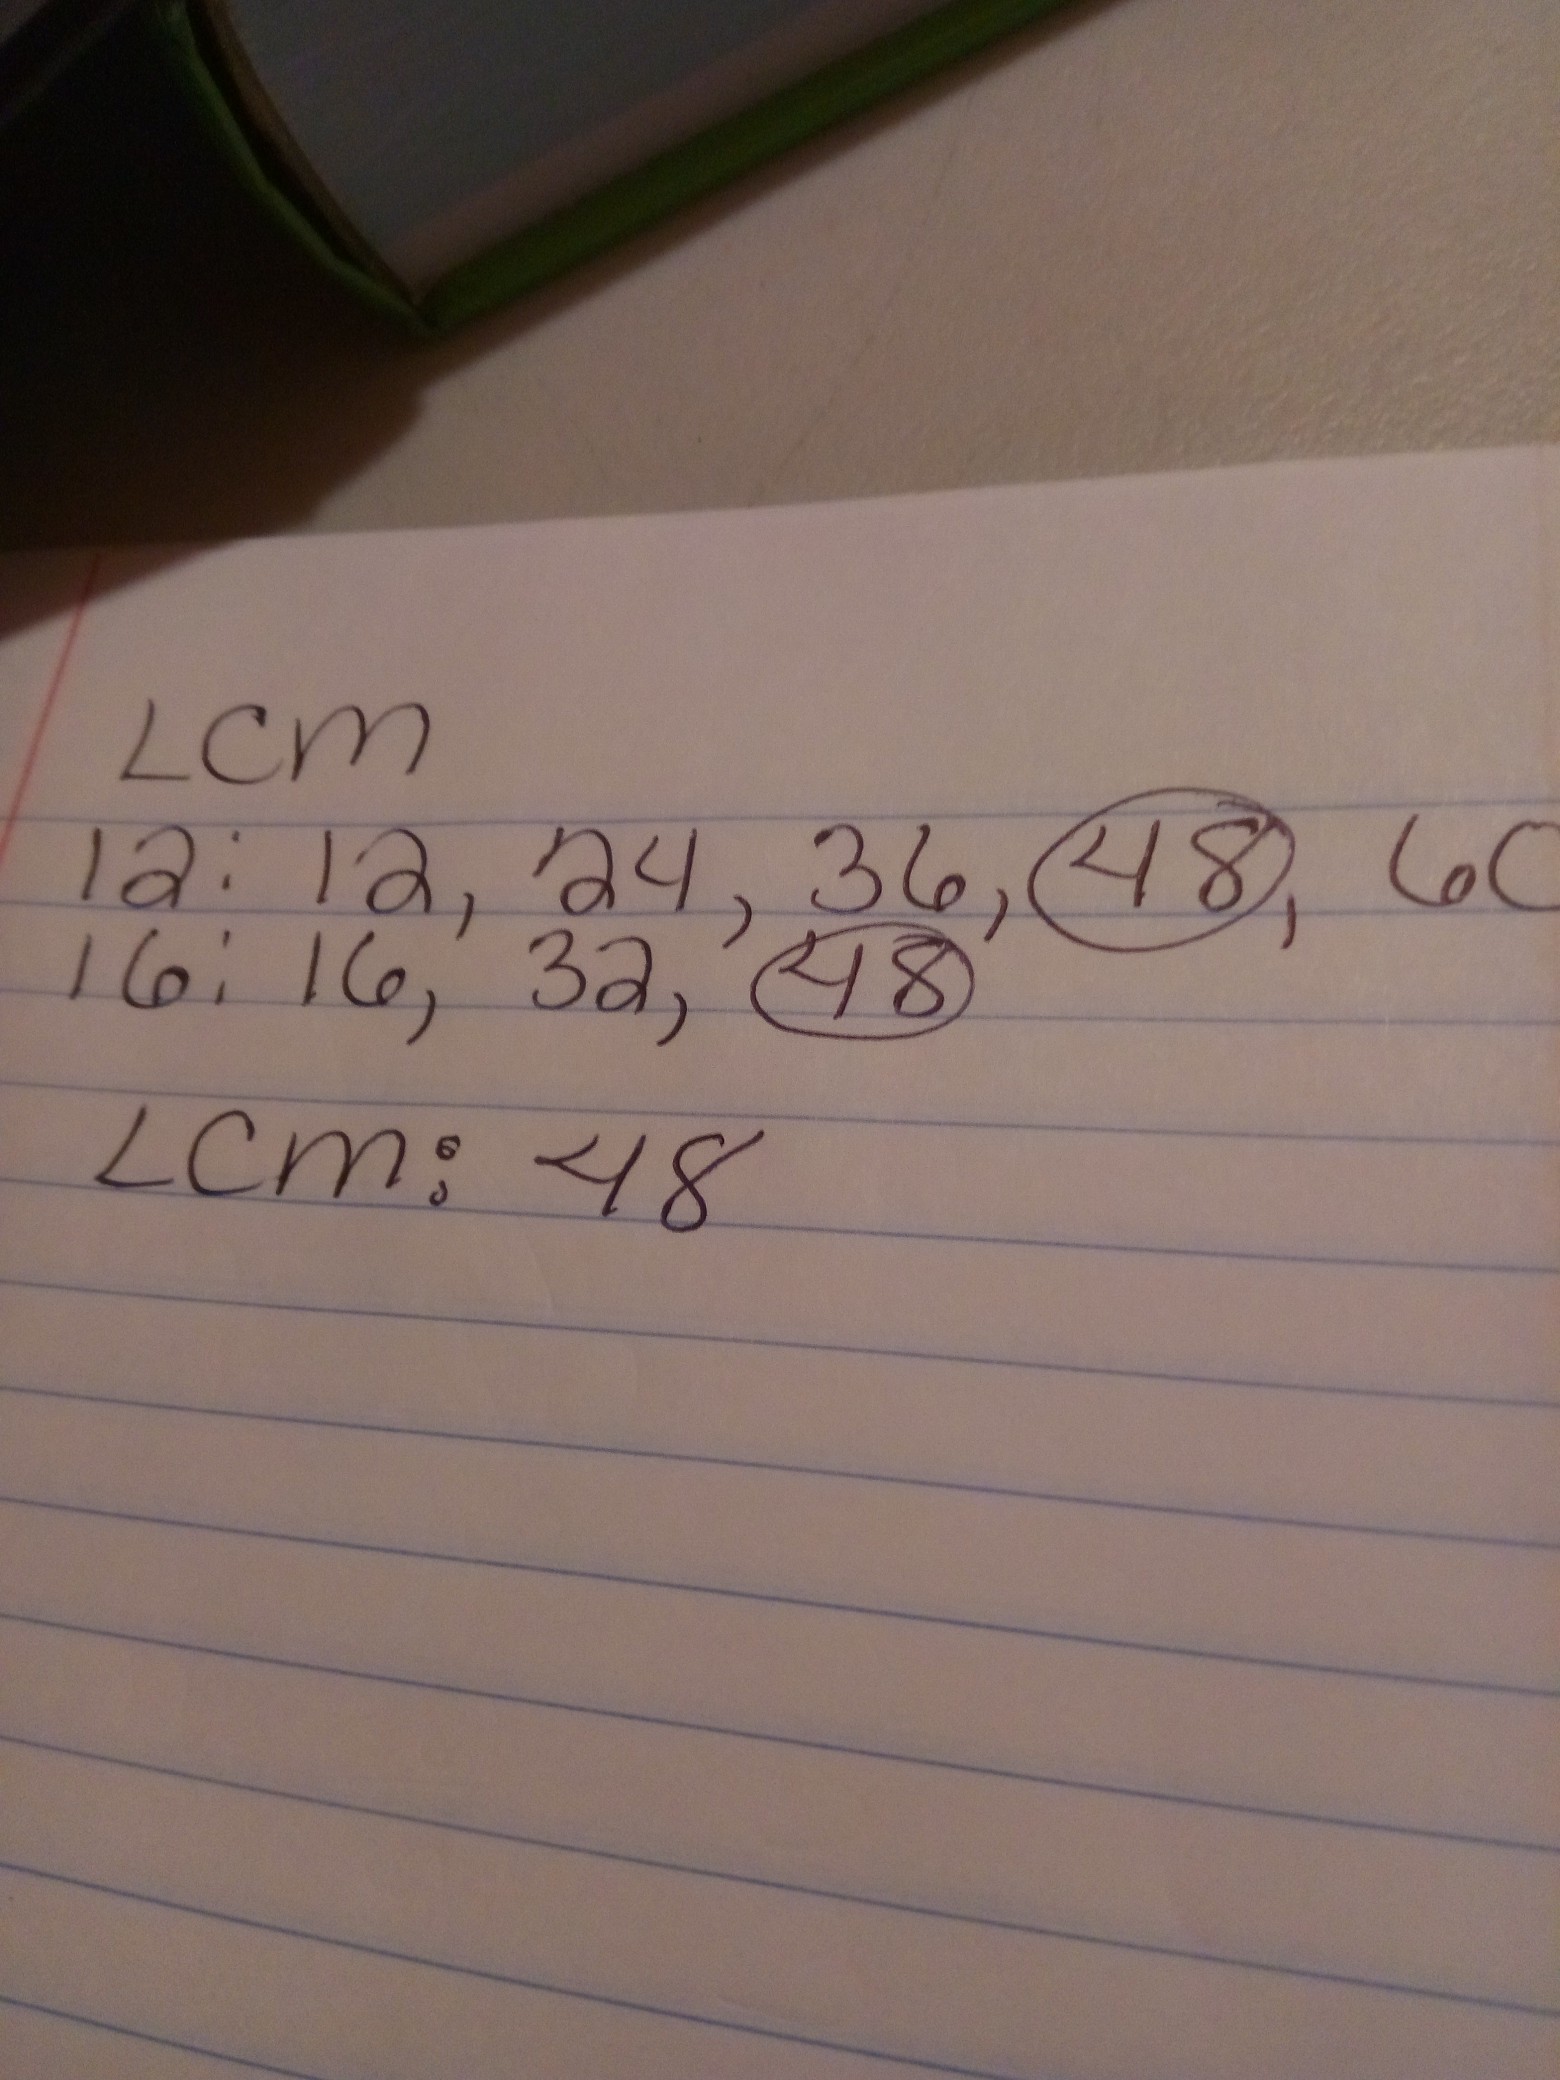 LCM
12: 12, 24, 36, 48, 60
16: 16, 32, 48
LCM: 48